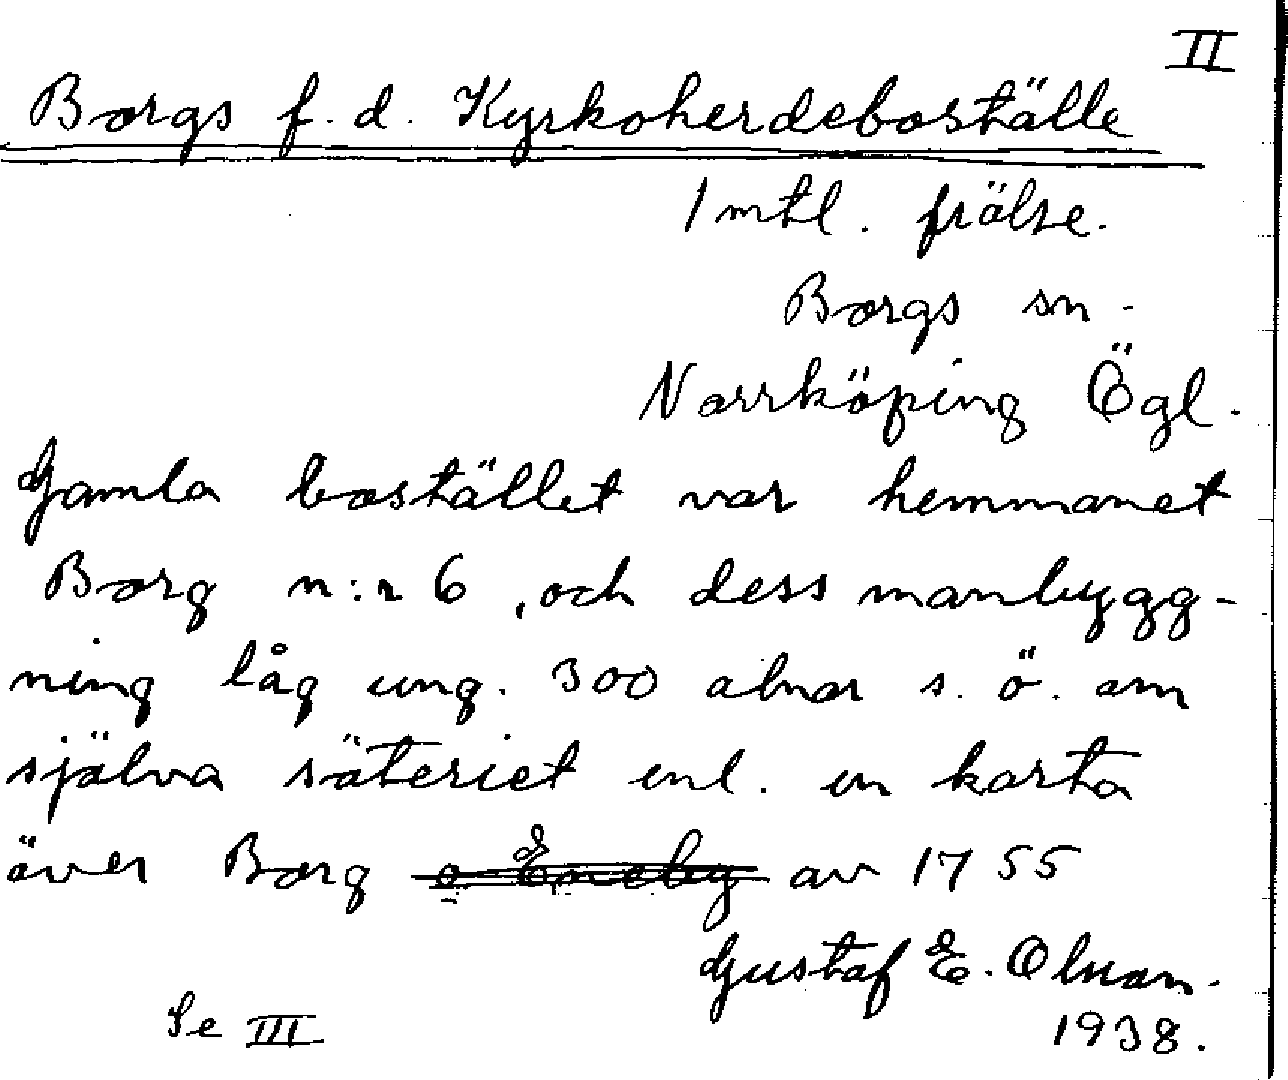 II
Borgs f. d. Kyrkoherdeboställe
1 mtl. frälse.
Borgs sn.
Norrköping Ögl.
Gamla bostället var hemmanet
Borg n:r 6, och dess manbygg-
ning låg ung. 300 alnar s. ö. om
själva säteriet enl. en karta
över Borg o Eneby av 1755
Gustaf E. Olsson.
Se III 1938.